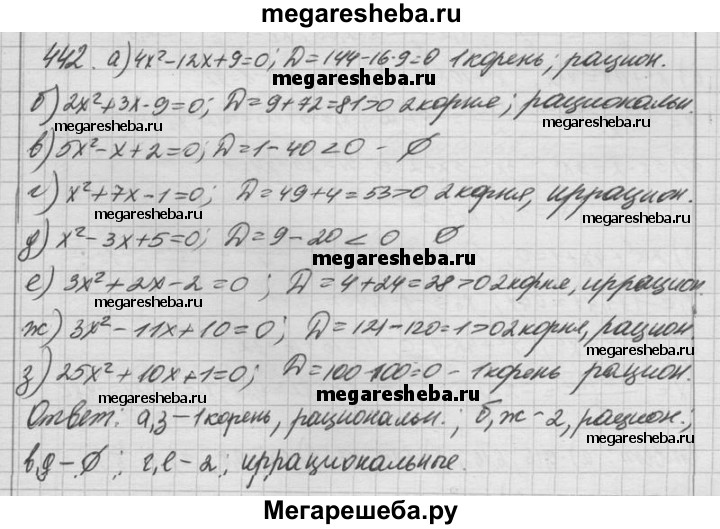 megaresheba.ru
442. а) 4x²-12x+9=0; D=144-16·9=0 1 корень; рацион.
megaresheba.ru
б) 2x²+3x-9=0; D=9+72=81>0 2 корня; рациональн.
megaresheba.ru megaresheba.ru
в) 5x²-x+2=0; D=1-40<0 - Ø
megaresheba.ru
г) x²+7x-1=0; D=49+4=53>0 2 корня, иррацион.
megaresheba.ru
д) x²-3x+5=0; D=9-20<0 Ø
megaresheba.ru
е) 3x²+2x-2=0; D=4+24=28>0 2 корня, иррацион.
megaresheba.ru
ж) 3x²-11x+10=0; D=121-120=1>0 2 корня, рацион
megaresheba.ru
з) 25x²+10x+1=0; D=100-100=0 - 1 корень рацион.
megaresheba.ru
Ответ: а,з-1 корень, рациональн.; б,ж-2, рацион.;
megaresheba.ru
в,д-Ø; г,е-2; иррациональные.
Мегарешеба.ру